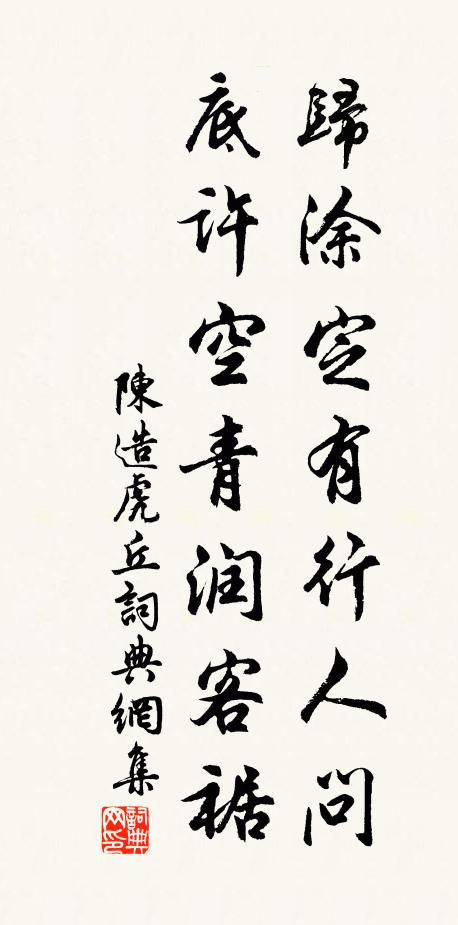 歸涂定有行人問
底許空青润客裾
陳造虎丘詞典網集
詞典网印